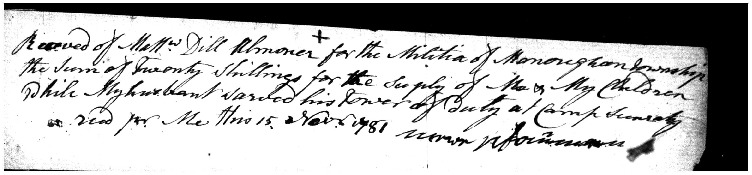 Receved of Mattw Dill Almoner for the Militia of Monoughan township
the Sum of Twenty Shillings for the Supply of Me & My Children
While My husbant Sarved his Tower of Duty at Camp Security
recd pr Me this 15 Novr 1781